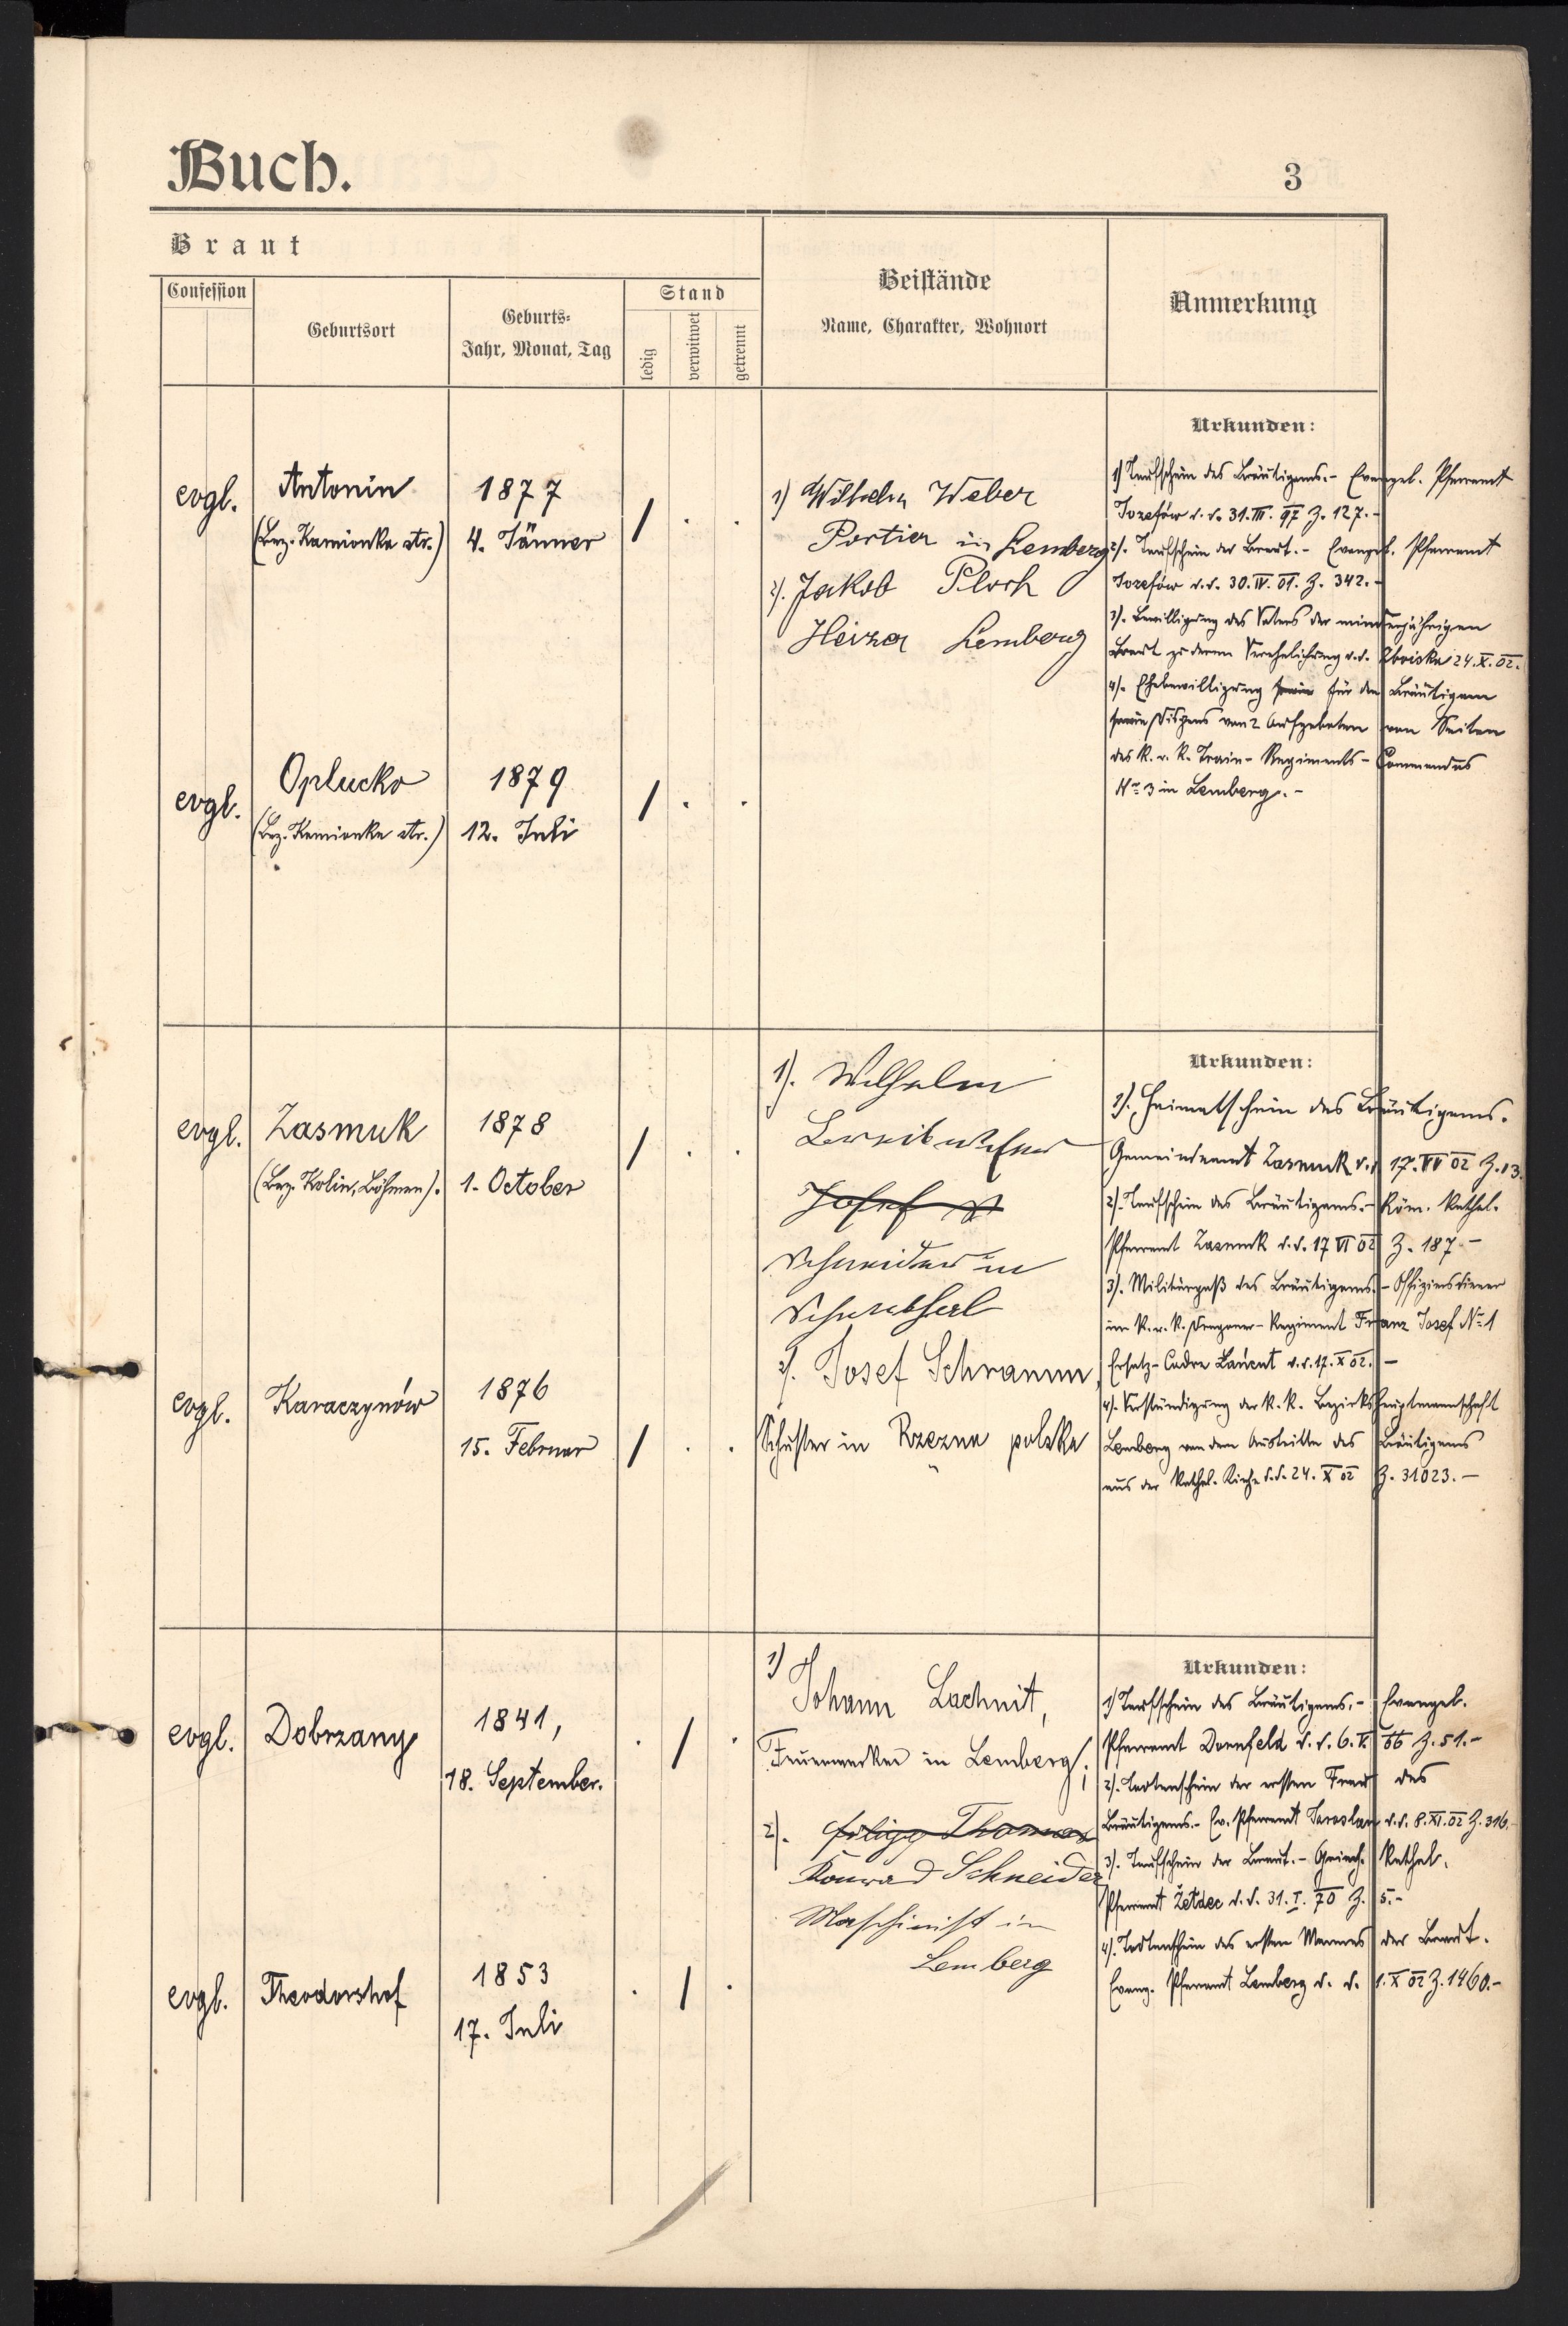 Buch.
3
Braut
Confession
Geburtsort
Geburts-
Jahr, Monat, Tag
Stand
ledig
verwitwet
getrennt
Beistände
Name, Charakter, Wohnort
Anmerkung
evgl.
Antonin
(Bez. Kamionka str.)
1877
4. Jänner
/ . .
evgl.
Oplucko
(Bez. Kamionka str.)
1879
12. Juli
/ . .
1) Wilhelm Weber
Portier in Lemberg
2). Jakob Ploch
Heizer Lemberg
Urkunden:
1) Taufschein des Bräutigams.- Evangel. Pfarramt
Jozefów d. d. 31. III. 97 Z. 127.-
2). Taufschein der Braut.- Evangel. Pfarramt
Jozefów d. d. 30. IV. 01. Z. 342.-
3). Bewilligung des Vaters der minderjährigen
Braut zu deren Verehelichung d. d. Zboiska 24. X. 02.
4). Ehebewilligung sowie für den Bräutigam
sowie Dispens von 2 Aufgeboten von Seiten
des k. u. k. Train-Regiments-Commandos
No 3 in Lemberg.-
evgl.
Zasmuk
(Bez. Kolin, Böhmen).
1878
1. October
/ . .
evgl.
Karaczynów
1876
15. Februar
/ . .
1). Wilhelm
Josef
Schneider in
2). Josef Schramm,
Schuster in Rzezna polska
Urkunden:
1). Heimatschein des Bräutigams.
Gemeindeamt Zasmuk d. d. 17. VI 02 Z.
2). Taufschein des Bräutigams.- Röm. kathol.
Pfarramt Zasmuk d. d. 17 VI 02 Z. 187.-
3). Militärpaß des Bräutigams.- Offiziersdiener
im k. u. k. Dragoner-Regiment Franz Josef No 1
Ersatz-Cadre Łańcut d. d. 17. X 02.-
4). Verständigung der k. k. Bezirkshauptmannschaft
Lemberg von dem Austritte des Bräutigams
aus der kathol. Kirche d. d. 24. X 02 Z. 31023.-
evgl.
Dobrzany
1841,
18. September.
. / .
evgl.
Theodorshof
1853
17. Juli
. / .
1) Johann Lachnit,
Feuerwerker in Lemberg;
2). Filipp Thomas
Konrad Schneider
Maschinist in
Lemberg
Urkunden:
1) Taufschein des Bräutigams.- Evangel.
Pfarramt Dornfeld d. d. 6. V. 66 Z. 51.-
2). Todtenschein der ersten Frau des
Bräutigams.- Ev. Pfarramt Jaroslau d. d. 8. XI. 02 Z. 316.-
3). Taufschein der Braut.- Griech. kathol.
Pfarramt d. d. 31. I. 70 Z. 5.-
4). Todtenschein des ersten Mannes der Braut.
Evang. Pfarramt Lemberg d. d. 1. X 02 Z. 1460.-